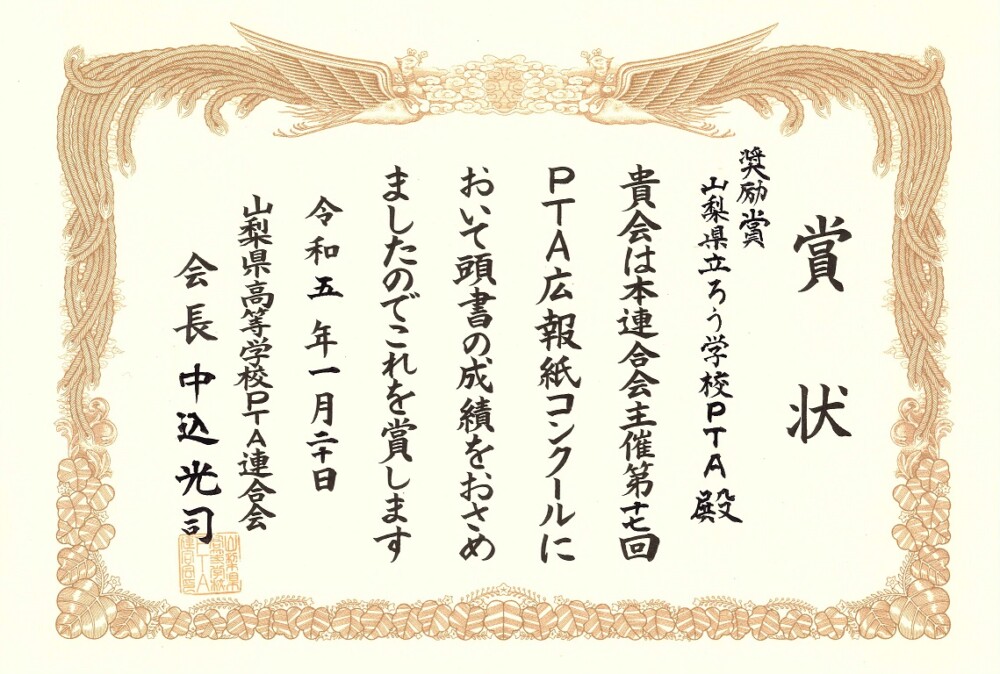 賞状
奨励賞
山梨県立ろう学校PTA殿
貴会は本連合会主催第十七回
PTA広報紙コンクールに
おいて頭書の成績をおさめ
ましたのでこれを賞します
令和五年一月二十日
山梨県高等学校PTA連合会
会長中込光司